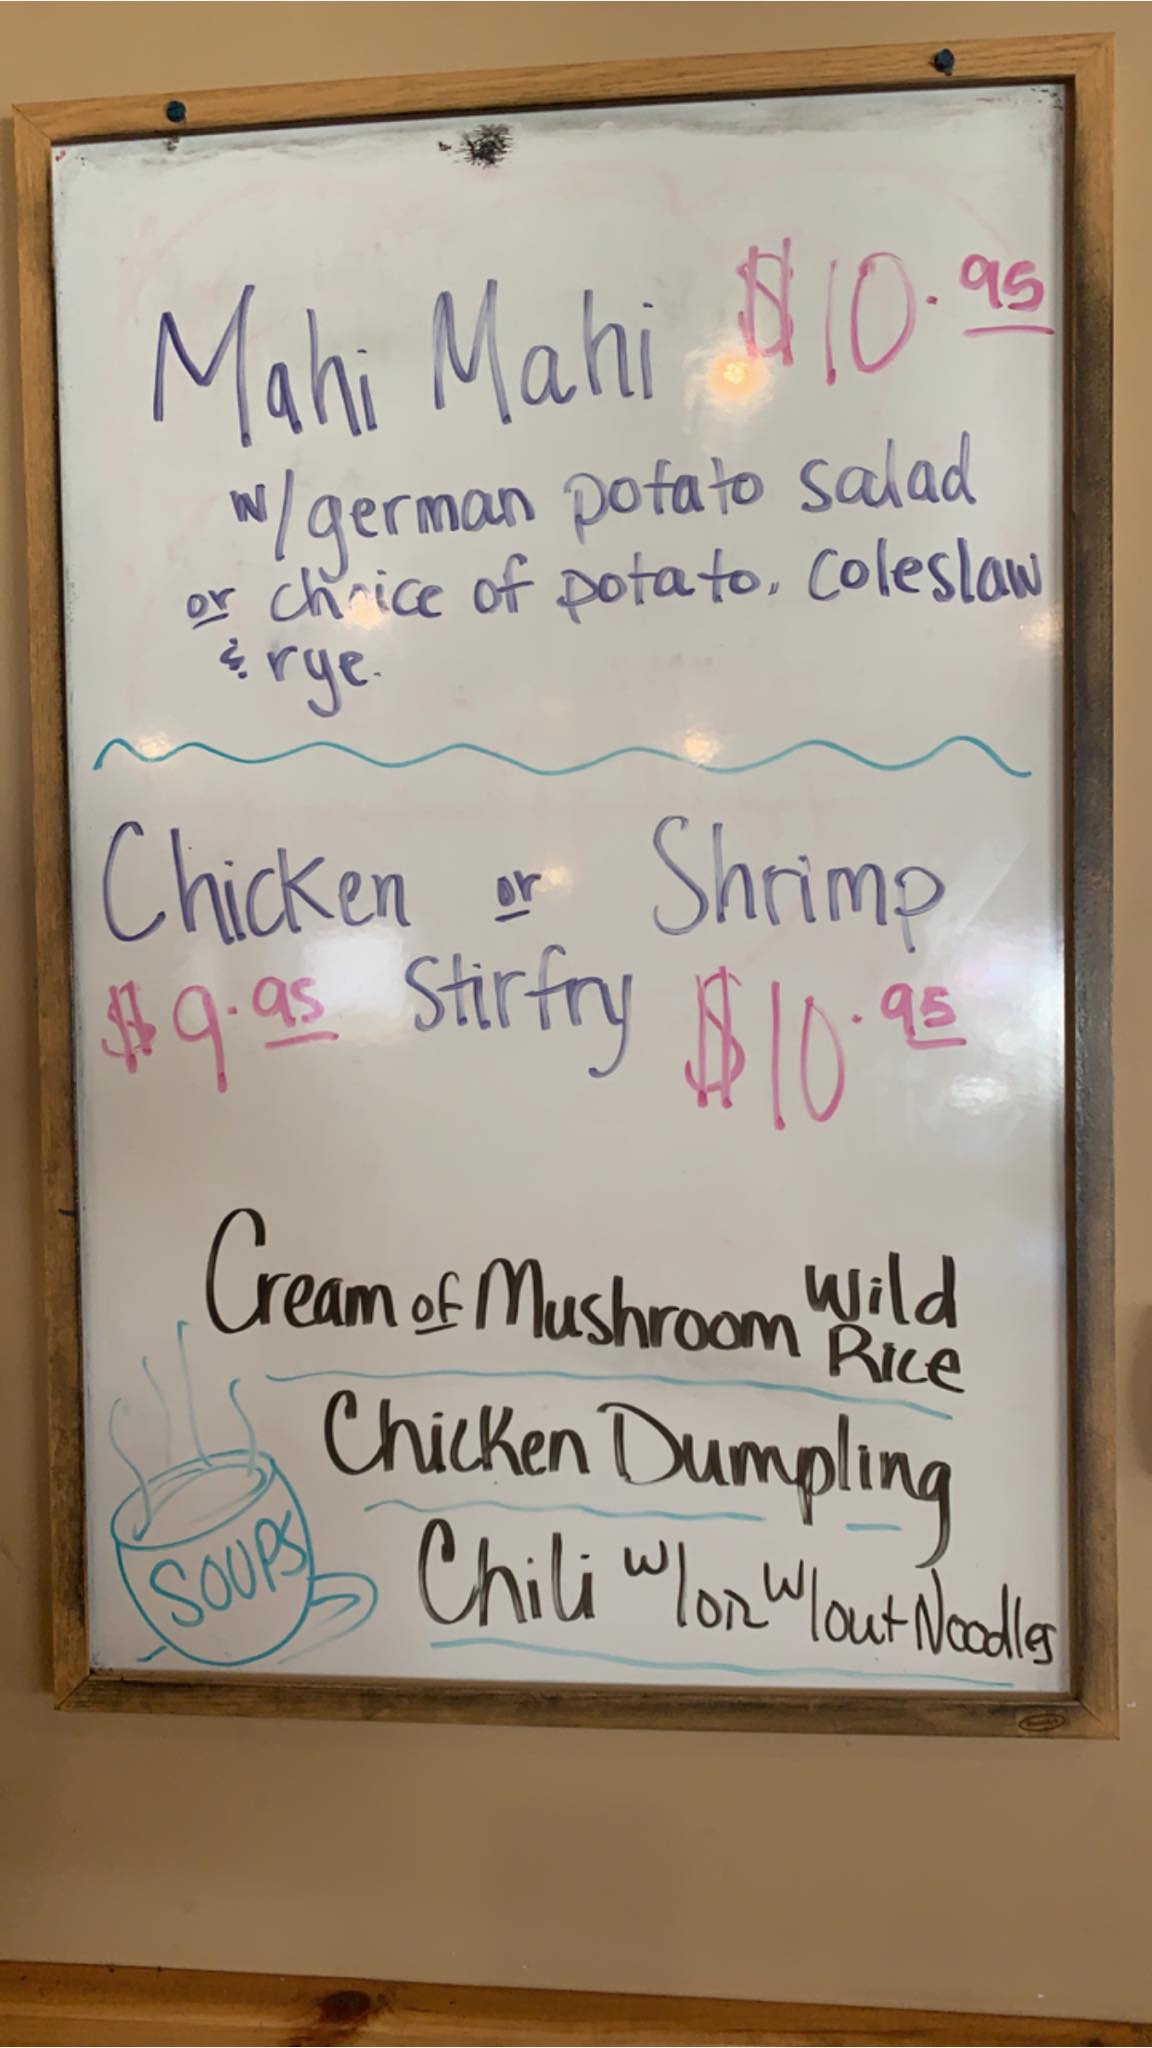 Mahi Mahi $10.95
w/german potato salad
or choice of potato, coleslaw
& rye.
Chicken or Shrimp
$9.95 Stirfry $10.95
Cream of Mushroom Wild
Rice
Chicken Dumpling
SOUPS
Chili w/or w/out Noodles